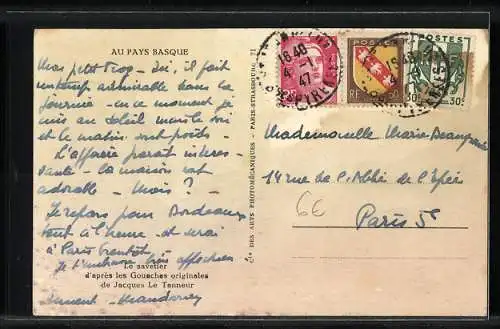 AU PAYS BASQUE
Mon petit — Ici, il fait
un temps admirable dans la
journée — en ce moment je
suis au soleil mais le soir
et le matin sont froids.
L'affaire paraît intéres-
sante — la maison est
adorable — Mais ?
Je repars pour Bordeaux
tout à l'heure et serai
à Paris bientôt.
Je t'embrasse très affectueusement
Le savetier
d'après les Gouaches originales
de Jacques Le Tanneur
Cie DES ARTS PHOTOMÉCANIQUES - PARIS-STRASBOURG 71
16 40
4 - 1
47
PYRENEES
RF
POSTES
30c
Mademoiselle Marie
14 rue de l'Abbé de l'Epée
6€
Paris 5e